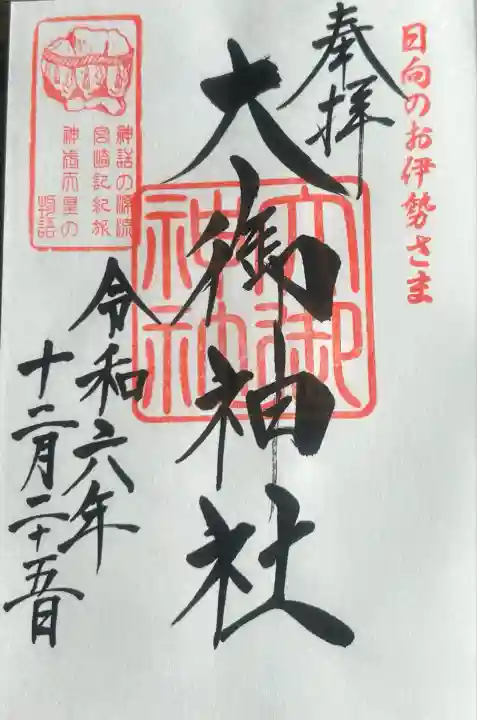 日向のお伊勢さま
奉拝
大御神社
大御
神社
令和六年
十二月二十五日
神話の源流
宮崎記紀旅
神座大量の
物語